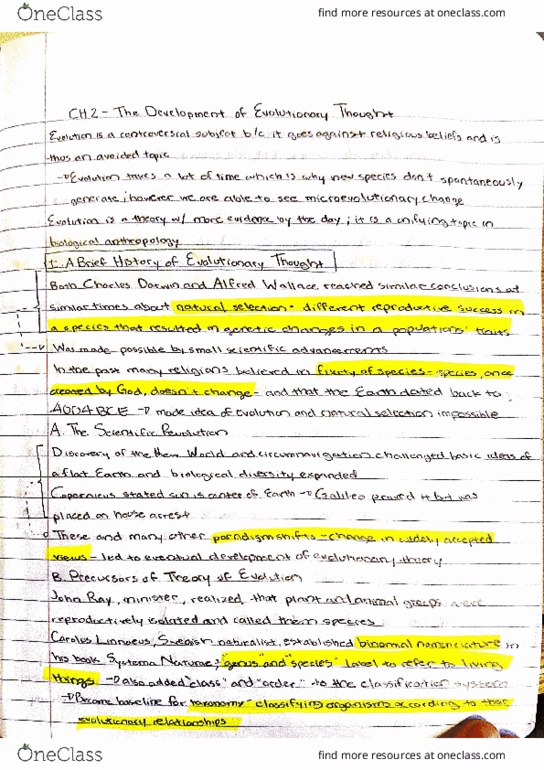 OneClass
find more resources at oneclass.com
CH 2 - The Development of Evolutionary Thought
Evolution is a controversial subject b/c it goes against religious beliefs and is
thus an avoided topic
→ Evolution takes a lot of time which is why new species don't spontaneously
generate; however we are able to see microevolutionary change
Evolution is a theory w/ more evidence by the day; it is a unifying topic in
biological anthropology
I. A Brief History of Evolutionary Thought
Both Charles Darwin and Alfred Wallace reached similar conclusions at
similar times about natural selection - different reproductive success in
a species that resulted in genetic changes in a populations' traits
→ Was made possible by small scientific advancements
In the past many religions believed in fixity of species - species, once
created by God, doesn't change - and that the Earth dated back to
4004 BCE → made idea of evolution and natural selection impossible
A. The Scientific Revolution
Discovery of the New World and circumnavigation challenged basic ideas of
a flat Earth and biological diversity expanded
Copernicus stated sun is center of Earth → Galileo proved it but was
placed on house arrest
→ These and many other paradigm shifts - change in widely accepted
views - led to eventual development of evolutionary theory
B. Precursors of Theory of Evolution
John Ray, minister, realized that plant and animal groups were
reproductively isolated and called them species
Carolus Linnaeus, Swedish naturalist, established binomial nomenclature in
his book Systema Naturae; "genus" and "species" label to refer to living
things → also added "class" and "order" to the classification system
→ Became baseline for taxonomy - classifying organisms according to their
evolutionary relationships
OneClass
find more resources at oneclass.com